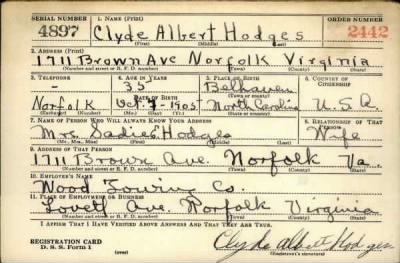 SERIAL NUMBER 1. NAME (Print) ORDER NUMBER
4897 Clyde Albert Hodges 2442
(First) (Middle) (Last)
2. ADDRESS (Print)
1711 Brown Ave Norfolk Virginia
(Number and street or R. F. D. number) (Town) (County) (State)
3. TELEPHONE 4. AGE IN YEARS 5. PLACE OF BIRTH 6. COUNTRY OF CITIZENSHIP
- 35 Belhaven
DATE OF BIRTH (Town or county)
Norfolk Oct. 7 - 1905 North Carolina U.S.A.
(Exchange) (Number) (Mo.) (Day) (Yr.) (State or country)
7. NAME OF PERSON WHO WILL ALWAYS KNOW YOUR ADDRESS 8. RELATIONSHIP OF THAT PERSON
Mrs. Sadie Hodges Wife
(Mr., Mrs., Miss) (First) (Middle) (Last)
9. ADDRESS OF THAT PERSON
1711 Brown Ave. Norfolk Va.
(Number and street or R. F. D. number) (Town) (County) (State)
10. EMPLOYER'S NAME
Wood Towing Co.
11. PLACE OF EMPLOYMENT OR BUSINESS
Lovett Ave. Norfolk Virginia
(Number and street or R. F. D. number) (Town) (County) (State)
I AFFIRM THAT I HAVE VERIFIED ABOVE ANSWERS AND THAT THEY ARE TRUE.
REGISTRATION CARD Clyde Albert Hodges
D. S. S. Form 1 (over) (Registrant's signature)